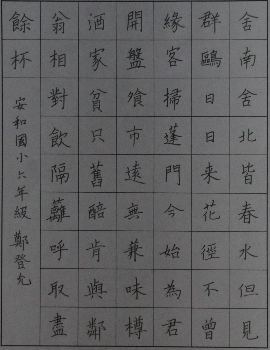 舍南舍北皆春水但見
群鷗日日来花徑不曾
緣客掃蓬門今始為君
開盤飧市遠無兼味樽
酒家貧只舊醅肯與鄰
翁相對飲隔籬呼取盡
餘杯
安和國小六年級 鄭登允